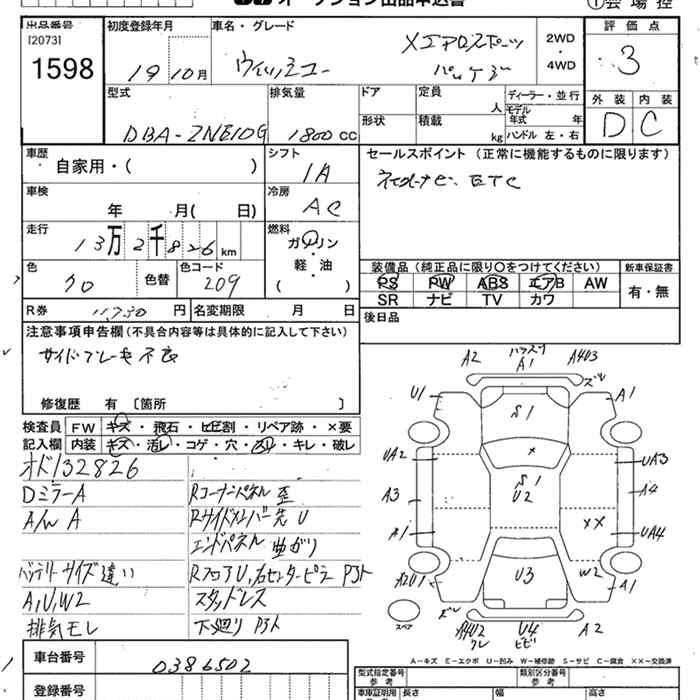 オークション出品申込書 ①会場控
出品番号 初度登録年月 車名・グレード 評価点
[2073] Xエアロスポーツ 2WD
1598 19 10月 ウィッシュ パッケージ 4WD 3
型式 排気量 ドア 定員 人 ディーラー・並行 外装 内装
DBA-ZNE10G 1800cc 形状 積載 kg モデル年式 年 D C
ハンドル 左・右
車歴 シフト セールスポイント (正常に機能するものに限ります)
自家用・( ) IA ETC
車検 冷房
年 月( 日) AC
走行 燃料
13万2千826km ガソリン
軽・油
( )
色 色替 色コード 装備品 (純正品に限り○をつけてください) 新車保証書
クロ 209 PS PW ABS エアB AW 有・無
SR ナビ TV カワ
R券 11,730円 名変期限 月 日 後日品
注意事項申告欄(不具合内容等は具体的に記入して下さい)
サイドブレーキ不良
修復歴 有 〔箇所 〕
検査員 FW キズ・飛石・ヒビ割・リペア跡・×要
記入欄 内装 キズ・汚レ・コゲ・穴・スリ・キレ・破レ
オド132826
DミラーA Rコーナーパネル歪
A/W A Rサイドメンバー先U
エンドパネル曲がり
バッテリーサイズ違い RフロアU,右センターピラーPラト
A,U,W2 スタッドレス
排気モレ 下廻りPラト
A2 A1 A4U3 ズレ
U1 S1 A1
UA2 × UA3
A3 S1 U2 A4
A1 ×× UA4
A2U1 U3 W2 A1
スペア ズレ A4U2 ワレ U4 ヒビ A2
A-キズ E-エクボ U-凹み W-補修跡 S-サビ C-腐食 ××-交換済
車台番号 0386502
登録番号
型式指定番号 参考 類別区分番号 参考
車庫証明用 長さ 幅 高さ